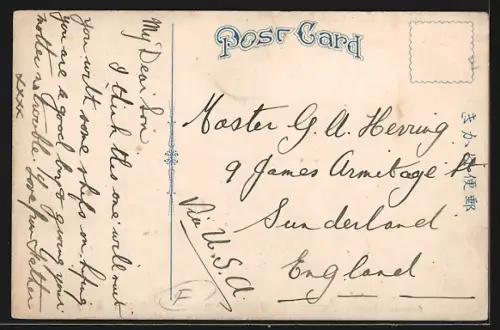 Post Card
きかは便郵
My Dear Son
I think this one will suit
you with some ships on. Hoping
you are a good boy & giving your
mother no trouble. Love from Father
xxxx
Master G. A. Herring
9 James Armitage St
Sunderland
England
Via U.S.A.